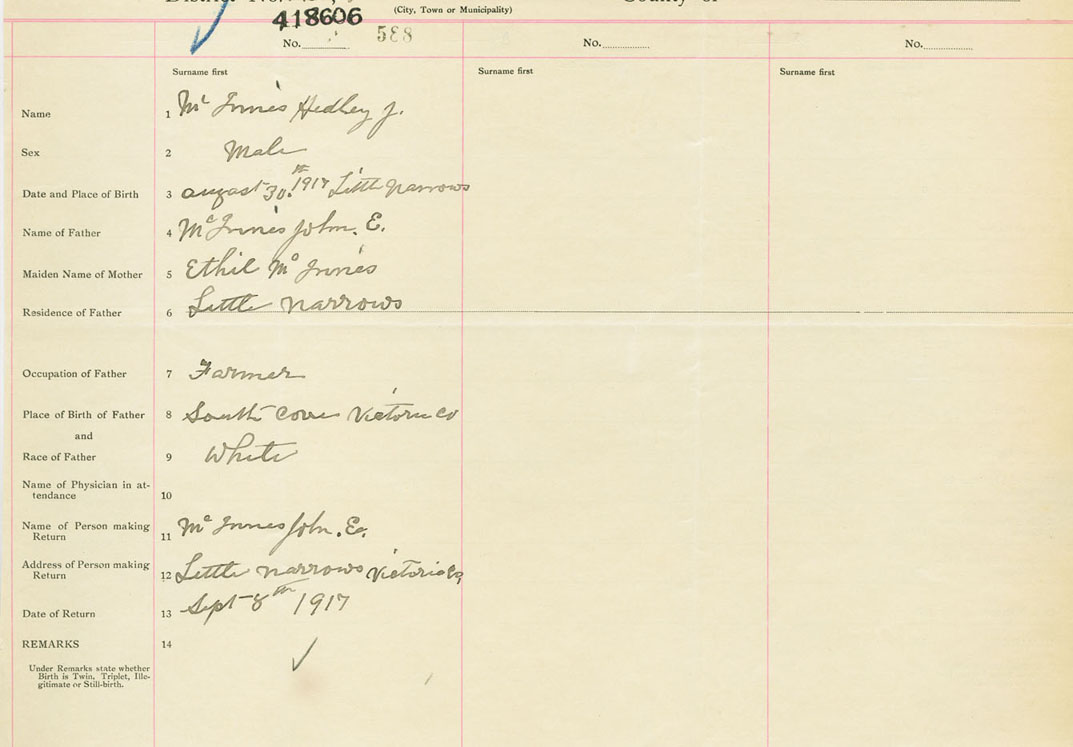 District No. County of
(City, Town or Municipality)
418606
No. 588 No. No.
Surname first Surname first Surname first
Name 1 Mc Innes Hedley J.
Sex 2 Male
Date and Place of Birth 3 august 30th 1917 Little narrows
Name of Father 4 Mc Innes John. E.
Maiden Name of Mother 5 Ethil Mc Innes
Residence of Father 6 Little narrows
Occupation of Father 7 Farmer
Place of Birth of Father 8 South Cove Victoria Co
and
Race of Father 9 White
Name of Physician in at-
tendance 10
Name of Person making
Return 11 Mc Innes John. E.
Address of Person making
Return 12 Little narrows Victoria Co
Date of Return 13 Sept 8th 1917
REMARKS 14
Under Remarks state whether
Birth is Twin, Triplet, Ille-
gitimate or Still-birth.